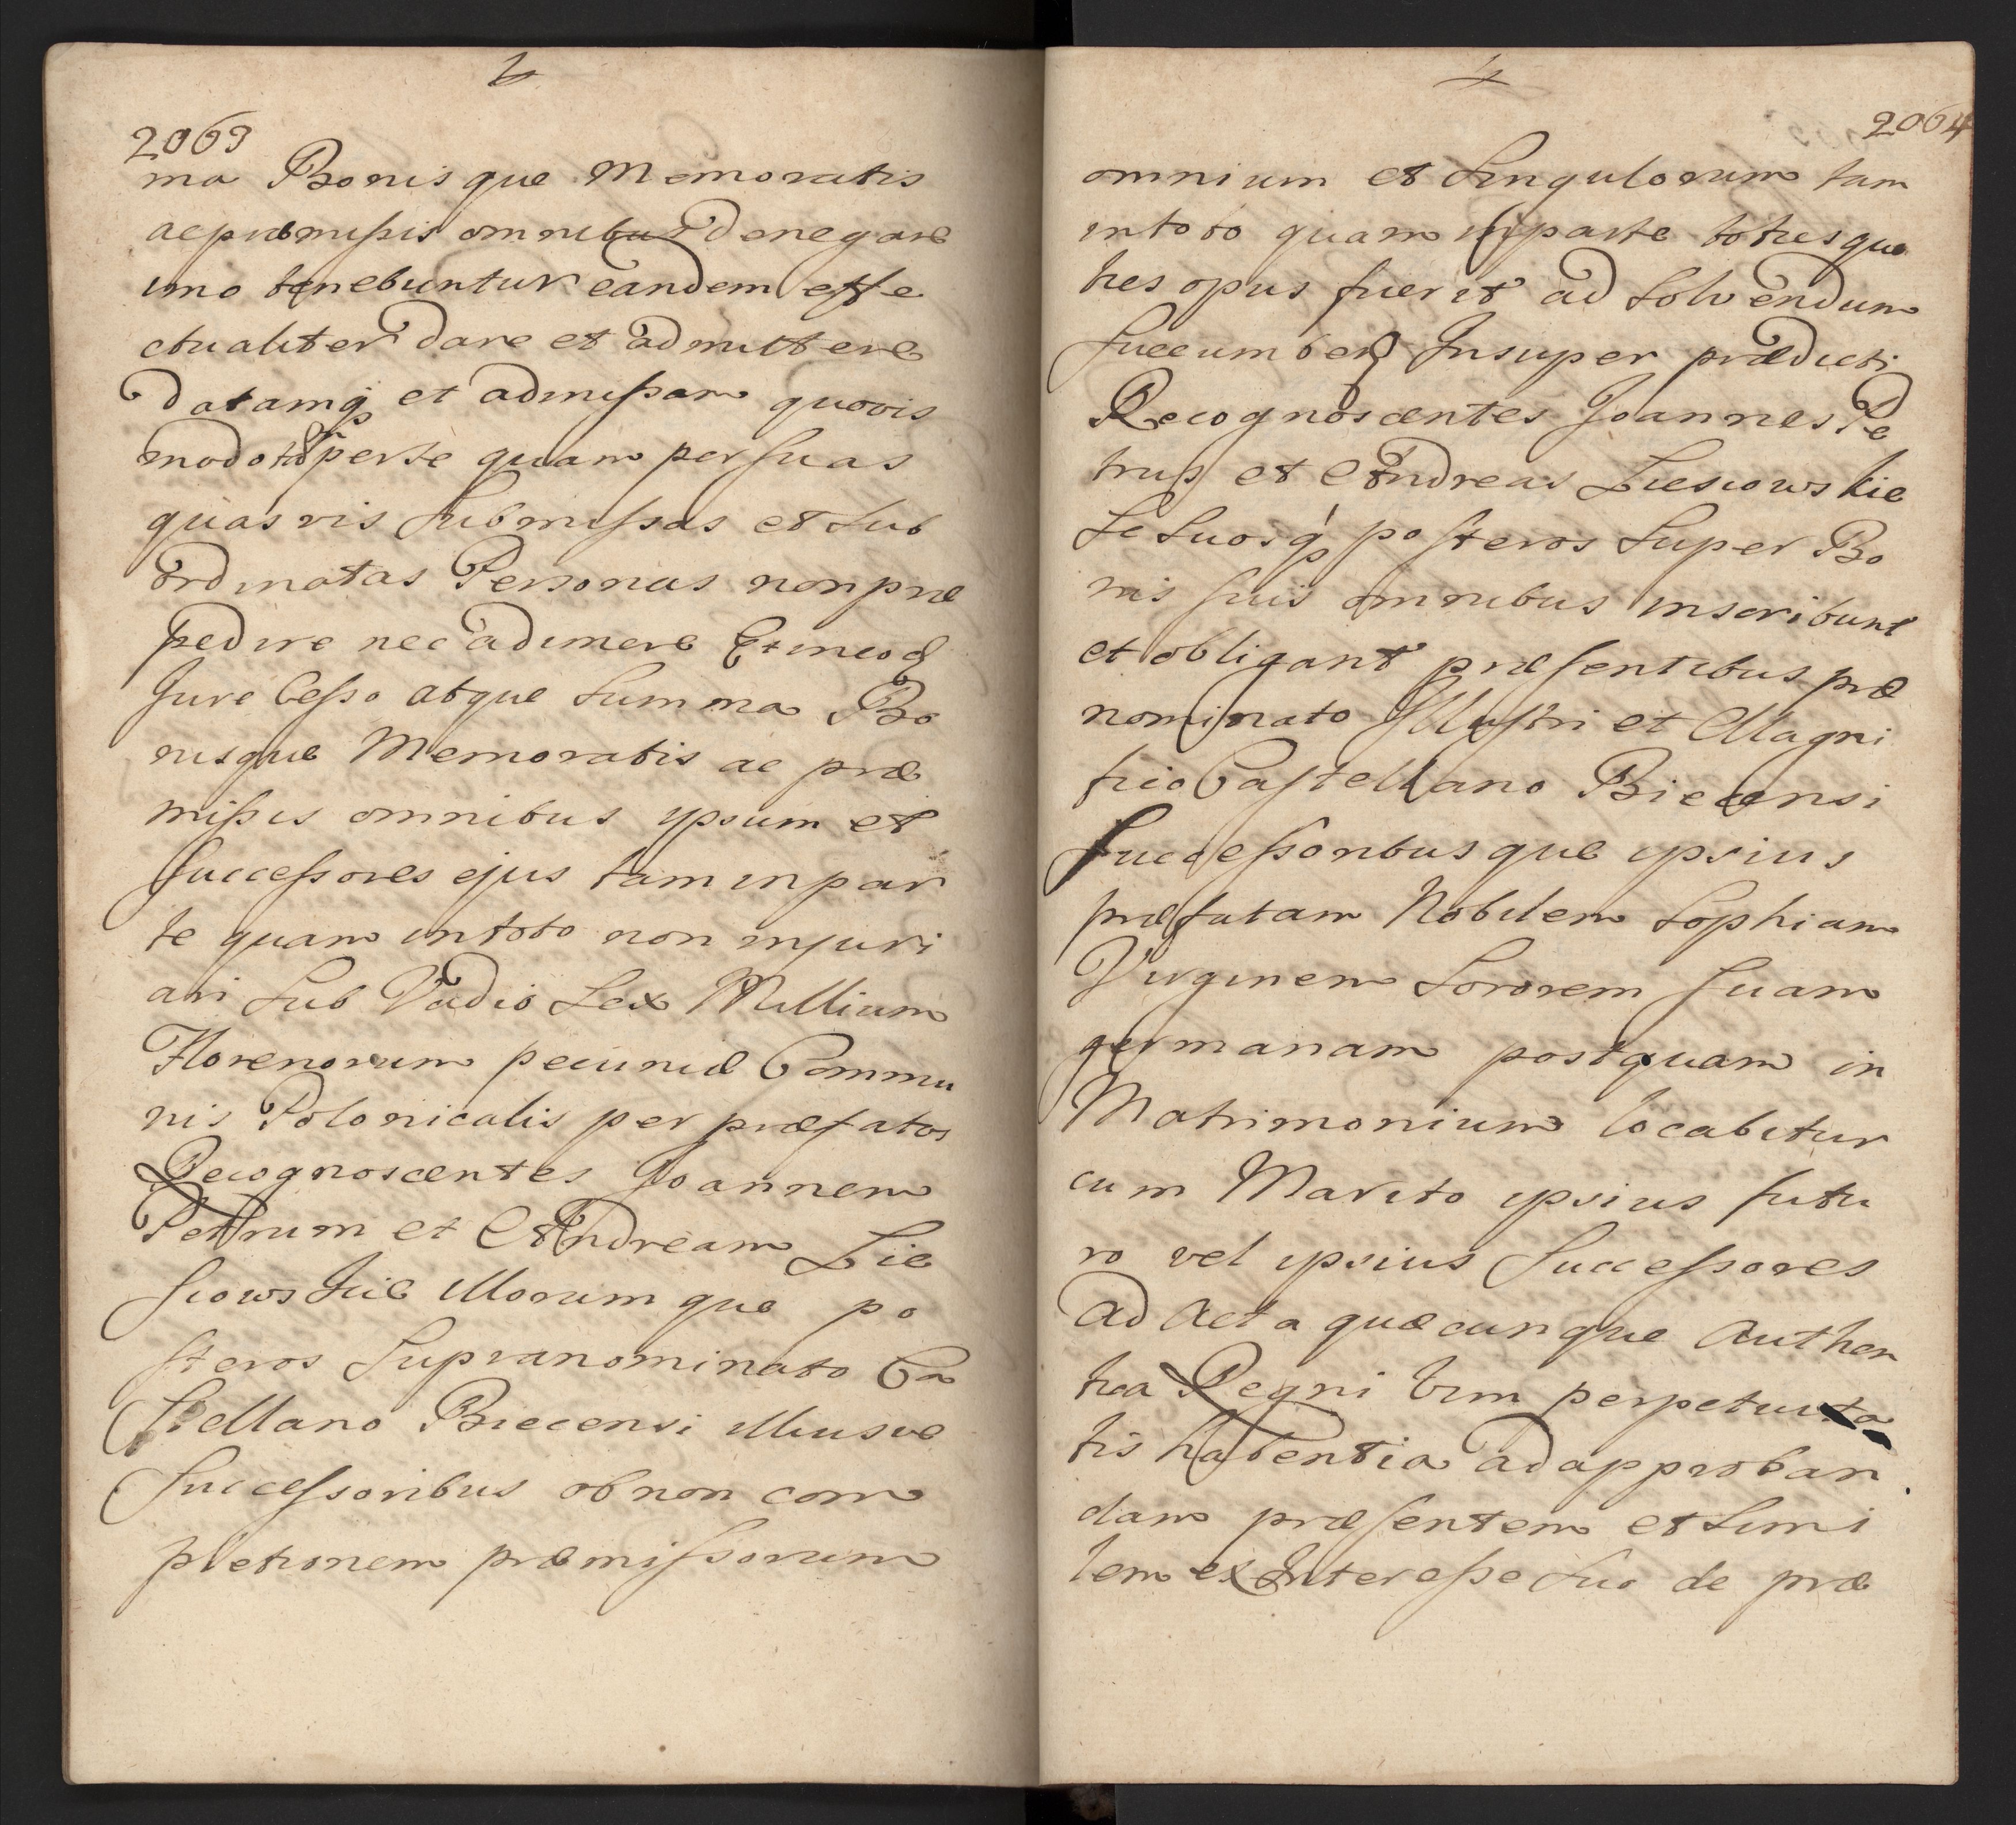 2063
ma Bonisque Memoratis
ac præmissis omnibus denegare
imo tenebuntur eandem effe
ctualiter dare et admittere
datamq; et admissam quovis
modo tam per se quam per suas
quasvis submissas et sub
ordinatas Personas non præ
pedire nec adimere
Jure Cesso atque Summa Bo
nisque Memoratis ac præ
missis omnibus ipsum et
Successores ejus tam in par
te quam in toto non injuri
ari Sub Vadio Sex Millium
Florenorum pecuniæ Commu
nis Polonicalis per præfatos
Recognoscentes Joannem
Petrum et Andream Lie
siowskie illorumque po
steros Supranominato Ca
stellano Biecensi illiusve
Successoribus ob non com
pletionem præmissorum
2064
omnium et Singulorum tam
in toto quam in parte totiesquo
ties opus fuerit ad Solvendum
Succumben Insuper prædicti
Recognoscentes Joannes Pe
trus et Andreas Liesiowskie
Se Suosq; posteros Super Bo
nis suis omnibus inscribunt
et obligant præsentibus præ
nominato Illustri et Magni
fico Castellano Biecensi
Successoribusque ipsius
præfatam Nobilem Sophiam
Virginem Sororem Suam
germanam postquam in
Matrimonium locabitur
cum Marito ipsius futu
ro vel ipsius Successores
ad Acta quæcunque Authen
tica Regni vim perpetuita
tis habentia ad approban
dam præsentem et Simi
lem ex Interesse Suo de præ